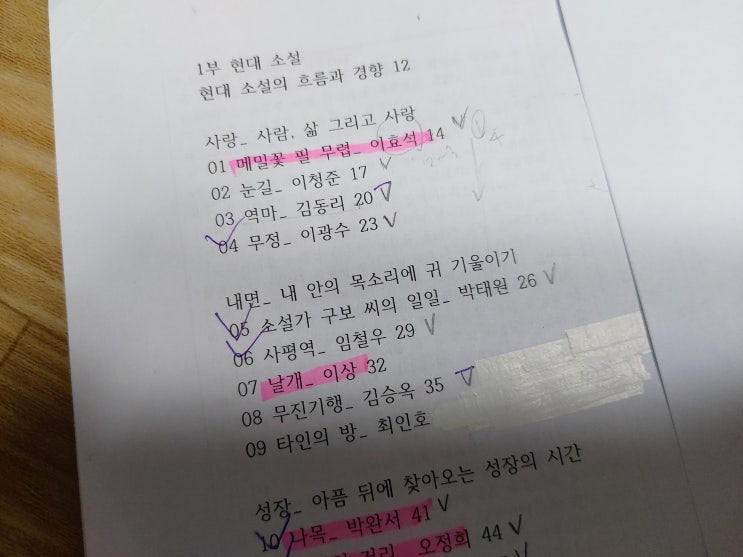 1부 현대 소설
현대 소설의 흐름과 경향 12
사랑_ 사람, 삶 그리고 사랑
01 메밀꽃 필 무렵_ 이효석 14
02 눈길_ 이청준 17
03 역마_ 김동리 20
04 무정_ 이광수 23
내면_ 내 안의 목소리에 귀 기울이기
05 소설가 구보 씨의 일일_ 박태원 26
06 사평역_ 임철우 29
07 날개_ 이상 32
08 무진기행_ 김승옥 35
09 타인의 방_ 최인호
성장_ 아픔 뒤에 찾아오는 성장의 시간
10 나목_ 박완서 41
거리_ 오정희 44